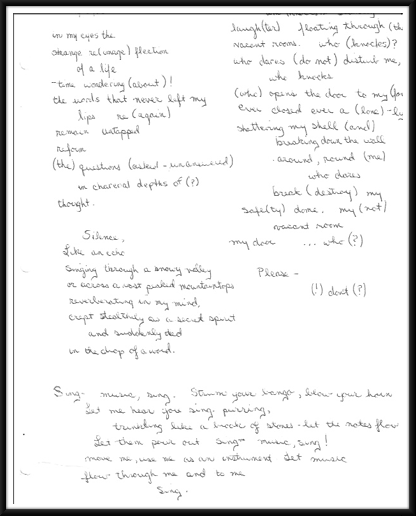 in my eyes the
strange re(image) flection
of a life
-time wondering (about)!
the words that never left my
lips re (again)
remain untapped
reform
(the) questions (asked - unanswered)
in charcoal depths of (?)
thought.
Silence,
Like an echo
Singing through a snowy valley
or across a vast peaked mountaintops
reverberating in my mind,
crept stealthily as a secret spirit
and suddenly died
in the drop of a word.
laugh(ter) floating through (th
vacant rooms. who (knocks)?
who dares (do not) disturb me,
who knocks
(who) opens the door to my (for
ever closed ever a (lone) -ly
shattering my shell (and)
breaking down the wall
around, round (me)
who dares
break (destroy) my
safe(ty) dome. my (not)
vacant room
my door ... who (?)
Please -
(!) don't (?)
Sing - music, sing. Strum your banjo, blow your horn
Let me hear you sing, purring,
trembling like a brook of stones - let the notes flow
Let them pour out Sing - music, sing!
move me, use me as an instrument Let music
flow through me and to me
Sing.